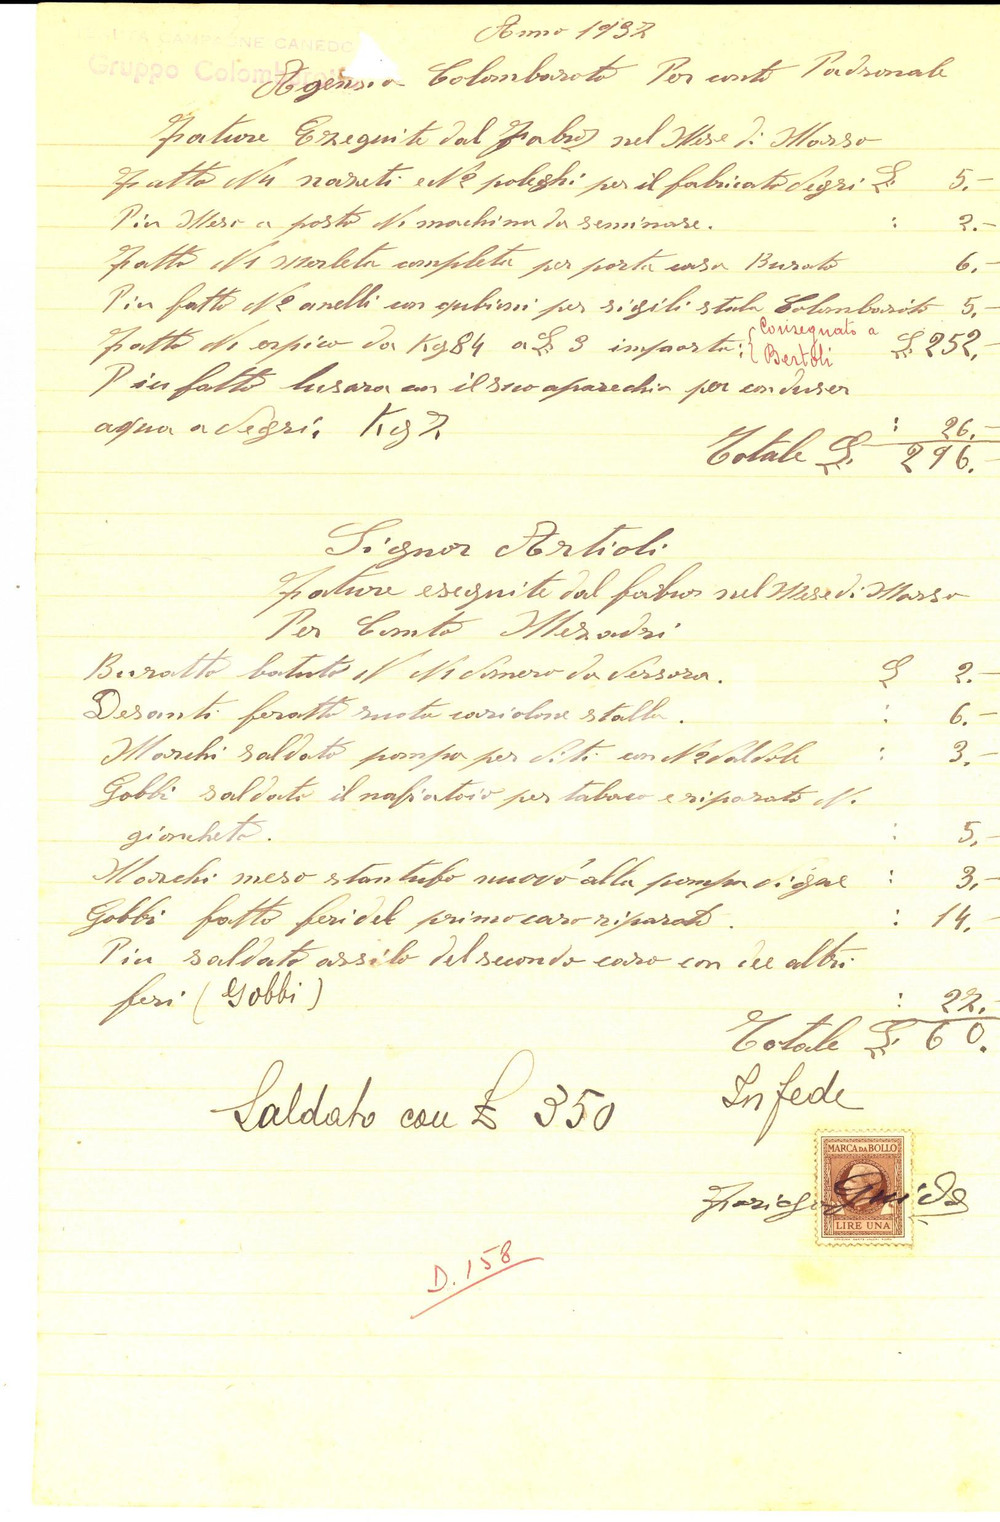 Anno 1932
CAMPAGNE CANEDO
Gruppo Colombaro
Agensia Colombaroto Per conto Padronale
Fature Eseguite dal Fabro nel Mese di Marso
Fatto N4 nareti e N2 poleghi per il fabricato Segri £ 5.-
Piu Meso a posto N1 machina da seminare. : 2.-
Fatto N1 Merleta completa per porta casa Burato 6.-
Piu fatto N2 anelli con gubioni per sigili stala Colombaroto 5.-
Fatto N1 erpico da Kg 84 a £ 3 importa: £ 252.-
Consegnato a
Bertoli
Piu fatto lusara con il suo aparechia per conduser
aqua a Segri. Kg 7 : 26.-
Totale £. 296.-
Signor Artioli
Fature eseguite dal fabro nel Mese di Marso
Per Conto Mezadri
Buratto batuto N N1 Somero da Versora. £ 2.-
Desanti feratto ruota cariolone stalla. : 6.-
Marchi saldato pompa per Viti con N2 Saldole : 3.-
Gobbi saldato il nafiatoio per tabaco e riparato N.
gioncheto. : 5.-
Marchi meso stantufo nuovo alla pompa : 3.-
Gobbi fatto feri del primo caro riparato. : 14.-
Piu saldato assilo del secondo caro con altri
feri (Gobbi) : 27.-
Totale £. 60.
Saldato con £ 350
In fede
MARCA DA BOLLO
LIRE UNA
Guido
D. 158